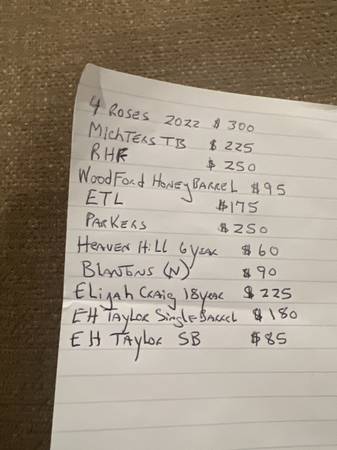 4 Roses 2022 $300
Michters TB $225
RHF $250
Woodford Honey Barrel $95
ETL $175
Parkers $250
Heaven Hill 6 year $60
Blantons (N) $90
Elijah Craig 18 year $225
EH Taylor Single Barrel $180
EH Taylor SB $85